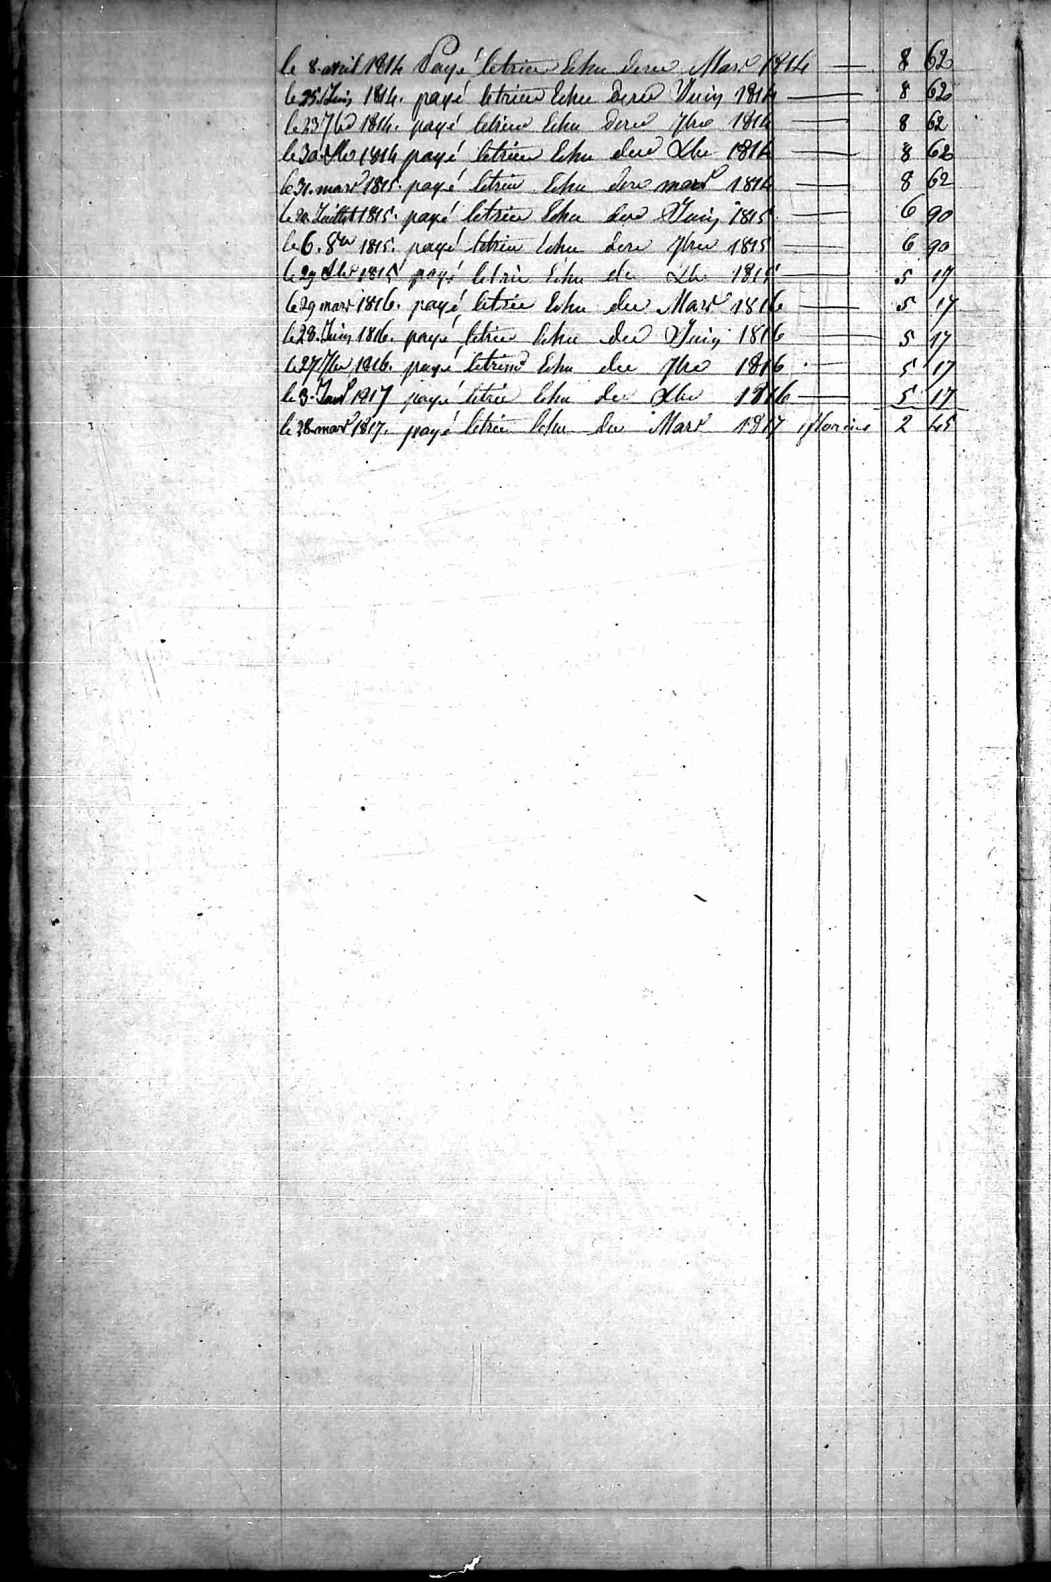 le 8 avril 1814 Payé letrim Echu dere Mars 1814 8 62
le 25 Juin 1814. payé letrim Echu dere Juin 1814 8 62
le 23 7bre 1814. payé letrim Echu dere 7bre 1814 8 62
le 30 Xbre 1814 payé letrim Echu dere Xbre 1814 8 62
le 31. mars 1815. payé letrim Echu dere mars 1814 8 62
le 20 Juillet 1815. payé letrim Echu dere Juin 1815 6 90
le 6. 8bre 1815. payé letrim Echu dere 7bre 1815 6 90
le 29 Xbre 1815 payé letrim Echu de Xbre 1815 5 17
le 29 mars 1816. payé letrim Echu de Mars 1816 5 17
le 28. Juin 1816. payé letrim Echu de Juin 1816 5 17
le 27 7bre 1816. payé letrim Echu de 7bre 1816 5 17
le 3. Janv 1817 payé letrim Echu de Xbre 1816 5 17
le 28 mars 1817. payé letrim Echu de Mars 1817 florins 2 45